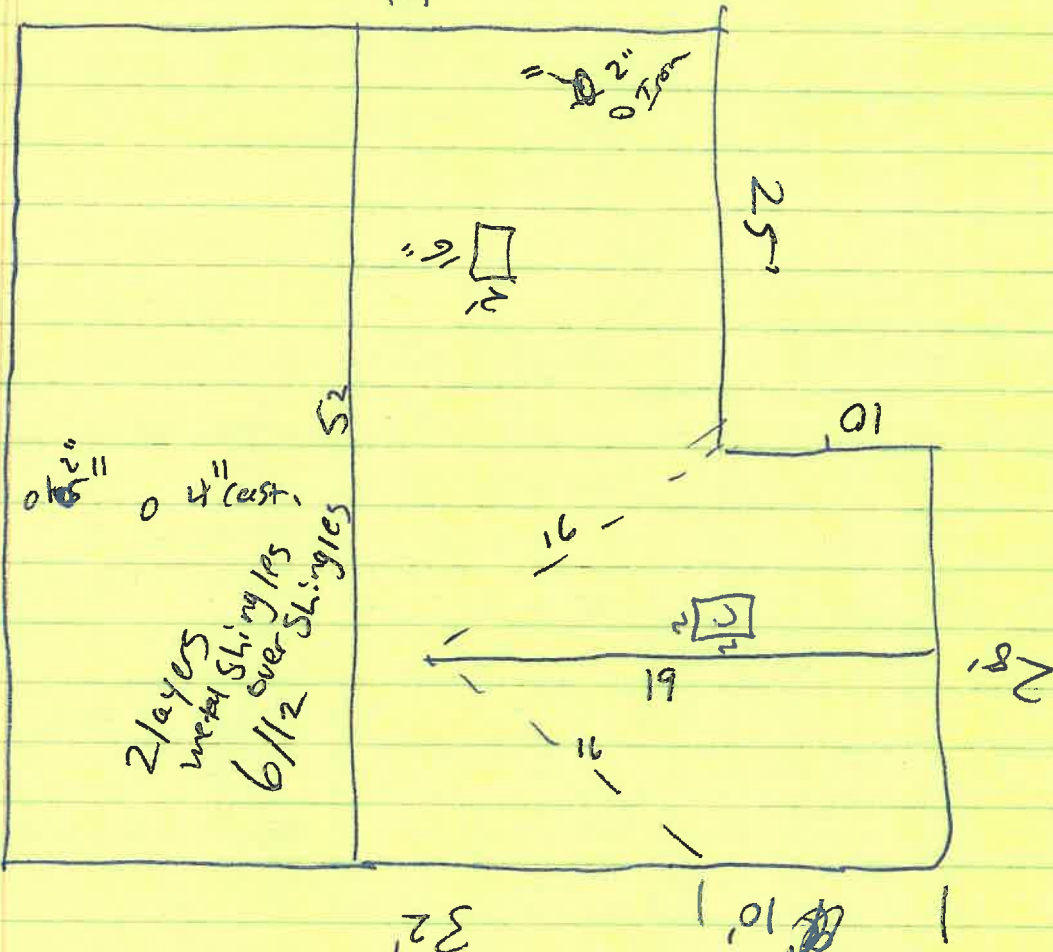 2"
Iron
25'
16"
2'
52
10
2"
4" cast.
16
2 layers
metal shingles
over shingles
6/12
2
2
19
28'
16
32'
10'